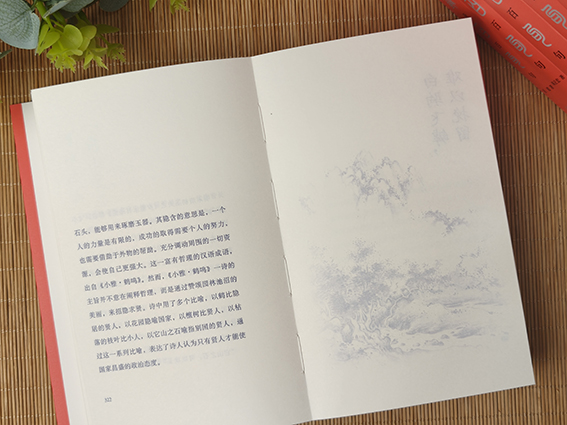 石头，能够用来琢磨玉器。其隐含的意思是，一个
人的力量是有限的，成功的取得需要个人的努力，
也需要借助于外物的帮助。充分调动周围的一切资
源，会使自己更强大。这一富有哲理的汉语成语，
出自《小雅·鹤鸣》。然而，《小雅·鹤鸣》一诗的
主旨并不意在阐释哲理，而是通过赞颂园林池沼的
美丽，来招隐求贤。诗中用了多个比喻，以鹤比隐
居的贤人，以花园隐喻国家，以檀树比贤人，以枯
落的枝叶比小人，以它山之石喻指别国的贤人，通
过这一系列比喻，表达了诗人认为只有贤人才能使
国家昌盛的政治态度。
312